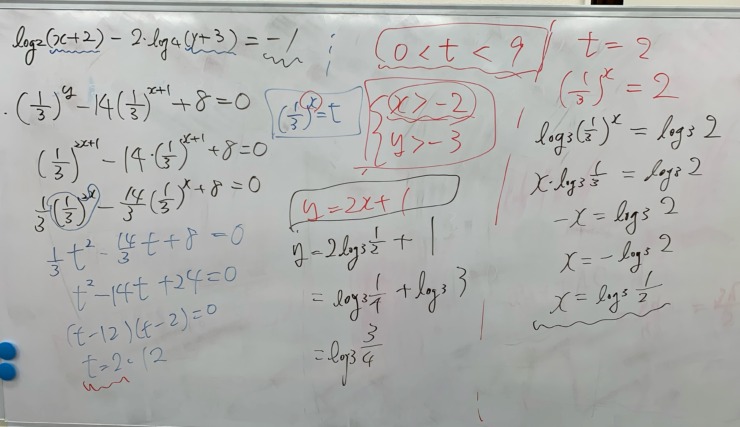 log₂(x+2) - 2·log₄(y+3) = -1
(1/3)^y - 14(1/3)^(x+1) + 8 = 0
(1/3)^(2x+1) - 14·(1/3)^(x+1) + 8 = 0
1/3 (1/3)^(2x) - 14/3 (1/3)^x + 8 = 0
1/3 t² - 14/3 t + 8 = 0
t² - 14t + 24 = 0
(t-12)(t-2) = 0
t = 2, 12
(1/3)^x = t
0 < t < 9
x > -2
y > -3
y = 2x + 1
y = 2log₃ 1/2 + 1
= log₃ 1/4 + log₃ 3
= log₃ 3/4
t = 2
(1/3)^x = 2
log₃(1/3)^x = log₃ 2
x·log₃ 1/3 = log₃ 2
-x = log₃ 2
x = -log₃ 2
x = log₃ 1/2